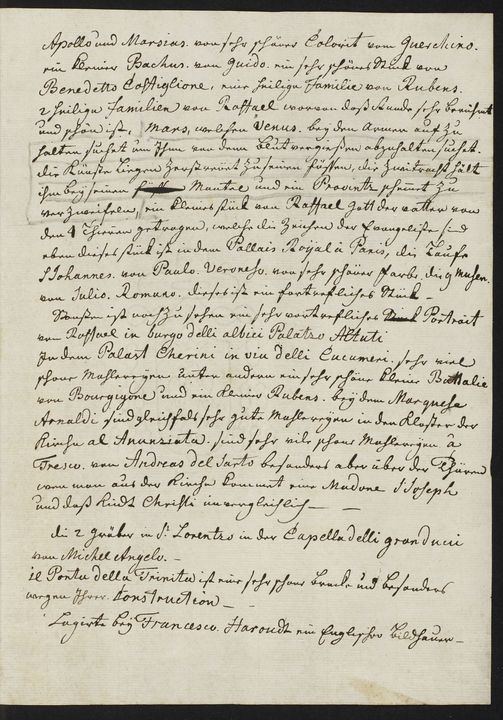 Apollo und Marsias. von sehr schöner Colorit vom Querchino.
ein kleiner Bachus. von Guido. ein sehr schönes Stück von
Benedetto Castiglione, eine heilige Familie von Rubens.
2 heilige Familien von Raffael worvon daß Runde sehr berühmt
und schön ist, Mars, welchen Venus. bey den Armen auf zu
halten suchet um Ihm von dem blut vergießen abzuhalten sucht.
die Künste liegen zerstreuet zu seinen füssen, die zwitracht hält
ihn bey seinen Mantel und ein Provintz scheinet zu
verzweifeln, ein kleines stück von Raffael Gott der vatter von
den 4 Thieren getragen, welche die Zeichen der Evangelisten sind
eben dieses stück ist in dem Pallais Roijal à Paris, die Taufe
S Johannes. von Paulo. Veronese. von sehr schöner Farbe. die 9 Musen.
von Julio. Romano. dieses ist ein fortrefliches Stück —
Sonsten ist noch zu sehen ein sehr vortrefliches Portrait
von Raffael in burgo delli albici Palatzo Altuti
In dem Palast Cherini in via delli Cucumeri. sehr viel
schöne Mahlereyen unter andern ein sehr schöne kleine Battalie
von Bourgigone und ein kleiner Rubens. bey dem Marquese
Arnaldi sind gleichfals sehr gute Mahlereyen in den Kloster der
Kirche al Anunziata. sind sehr vile schöne Mahlereyen à
Fresco. von Andreas del Sarto besonders aber über der Thüren
wen man aus der Kirche kommet eine Madone S Joseph
und daß Kindt Christi unvergleichlich —
die 2 gräber in St Lorentzo in der Capella delli granducci
von Michel Angelo. —
il Ponta della Trinita ist eine sehr schöne brucke und besonders
wegen Ihrer Construction —
Logirte bey Francesco. Haroudt ein Englischer Bildhauer —